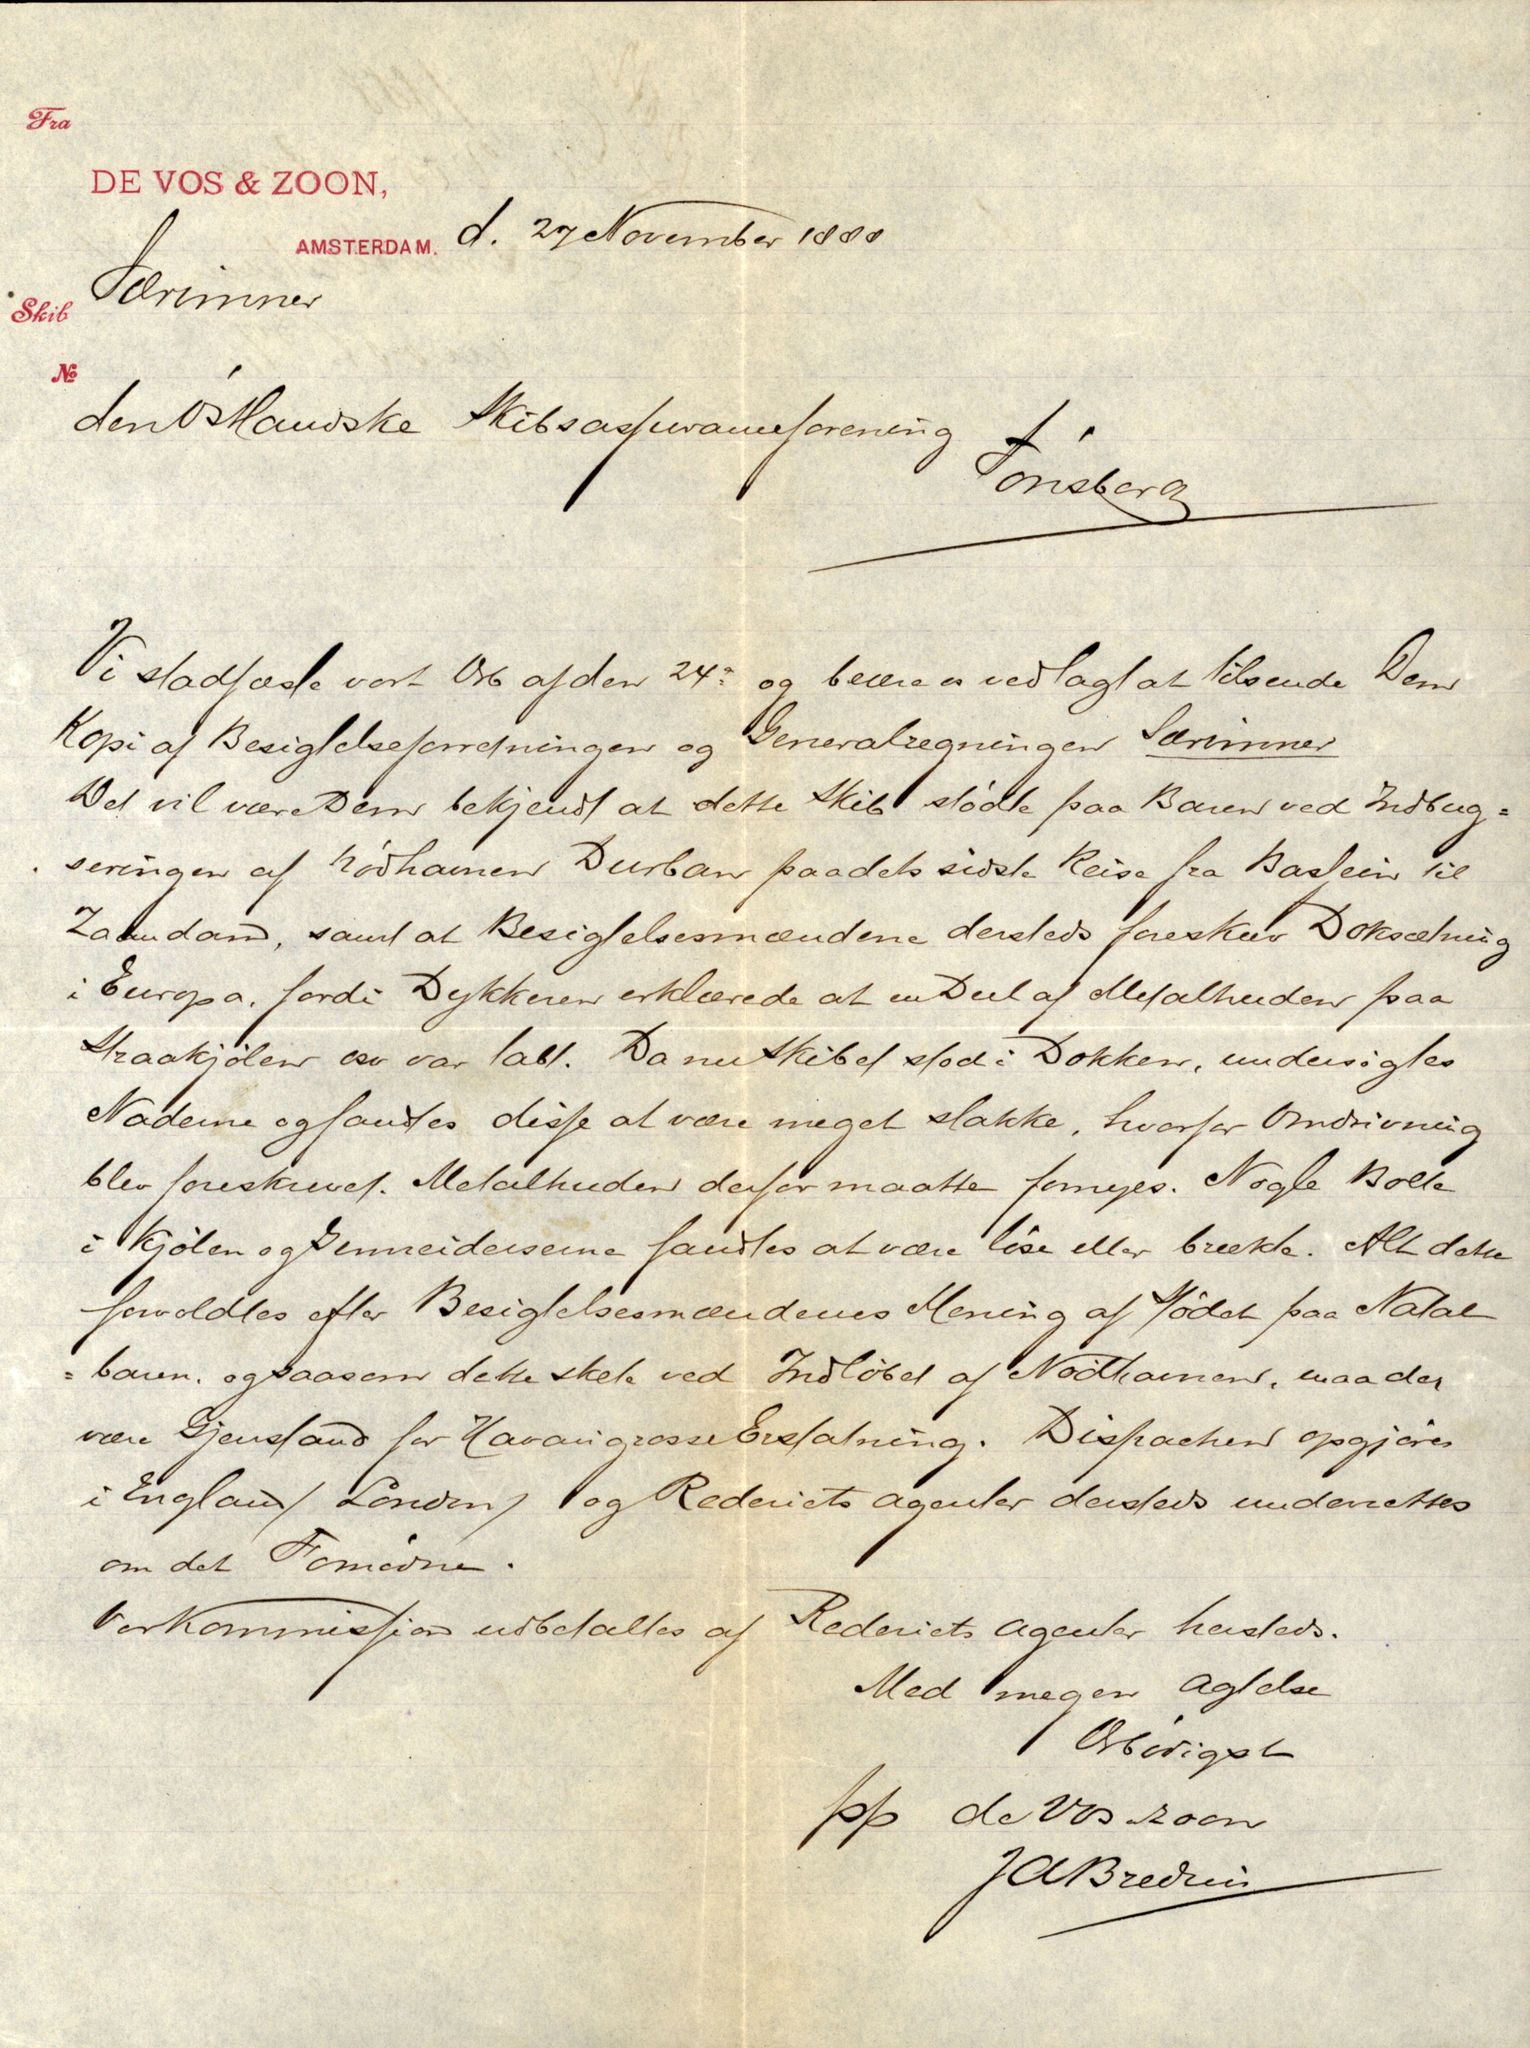 Fra
DE VOS & ZOON,
AMSTERDAM. d. 27 November 1888
Skib Særimner
No
den Østlandske Skibsassuranceforening
Tønsberg
Vi stadfæste vort Ærb af den 24de og beære os vedlagt at tilsende Dem
Kopi af Besigtelsesforretningen og Generalregningen Særimner
Det vil være Dem bekjendt at dette Skib stødte paa Baren ved Indbug=
seringen af Nødhavnen Durban paa dets sidste Reise fra Bassein til
Zaandam, samt at Besigtelsesmændene dersteds foreskrev Doksætning
i Europa, fordi Dykkeren erklærede at en Deel af Metalhuden paa
Straakjølen osv var tabt. Da nu Skibet stod i Dokken, undersigtes
Naderne og fandtes disse at være meget slakke, hvorfor Omdrivning
blev foreskrevet. Metalhuden derfor maatte fornyes. Nogle Bolte
i Kjølen og fandtes at være løse eller brækte. Alt dette
forvoldtes efter Besigtelsesmændenes Mening af Stødet paa Natal
=baren, og saasom dette skete ved Indløbet af Nødhavnen, maa der
være Gjenstand for Havarigrosse Erstatning. Dispachen opgjøres
i England / London / og Rederiets agenter dersteds underrettes
om det Fornødne.
Vor Kommission udbetaltes af Rederiets agenter hersteds.
Med megen agtelse
Ærbødigst
pp de Vos & zoon
J A